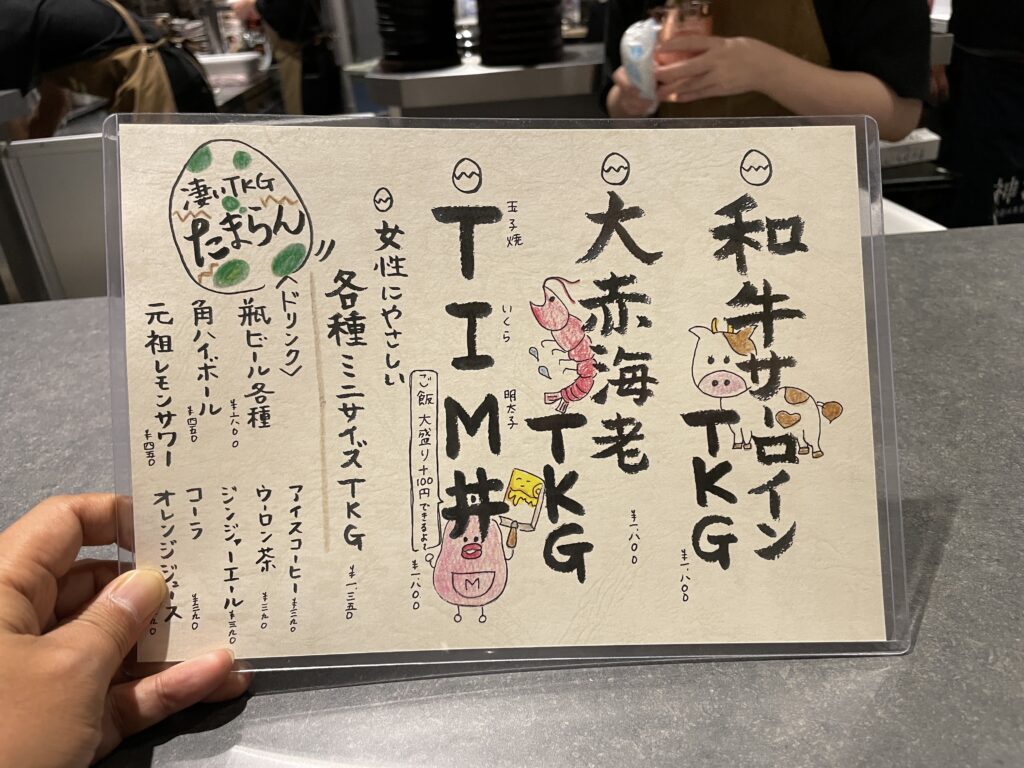 和牛サーロイン
TKG
¥1,800
大赤海老
TKG
¥1,800
玉子焼
いくら
明太子
TIM丼
¥1,800
ご飯 大盛り+100円できるよ♪
M
女性にやさしい
各種ミニサイズTKG
¥1,350
凄いTKG
たまらん
〈ドリンク〉
瓶ビール各種
角ハイボール
¥四五〇
元祖レモンサワー
¥四五〇
アイスコーヒー ¥三九〇
ウーロン茶 ¥三九〇
ジンジャーエール ¥三九〇
コーラ ¥三九〇
オレンジジュース